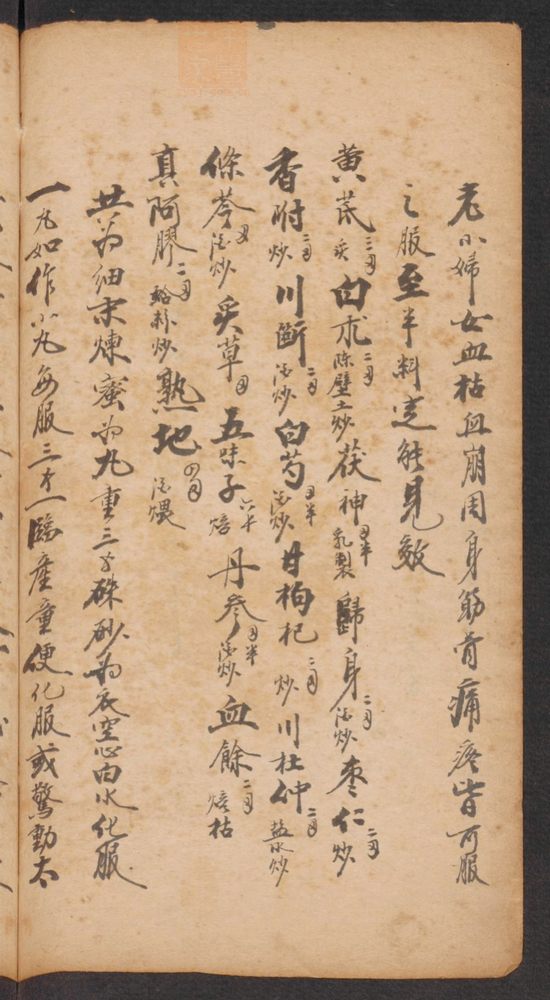 老小婦女血枯血崩周身筋骨痛疼皆可服
之服至半料定能見效
黄芪三両炙白朮二両陈壁土炒茯神両半乳製歸身二両酒炒棗仁二両炒
香附二両炒川斷二両酒炒白芍両半酒炒甘枸杞二両炒川杜仲二両盐水炒
條芩両酒炒炙草両五味子六十焙丹參両半酒炒血餘二両煅枯
真阿膠二両蛤粉炒熟地四両酒煨
共为细末煉蜜为丸重三子硃砂为衣空心白水化服
一丸如作小丸每服三才臨產童便化服或驚動太